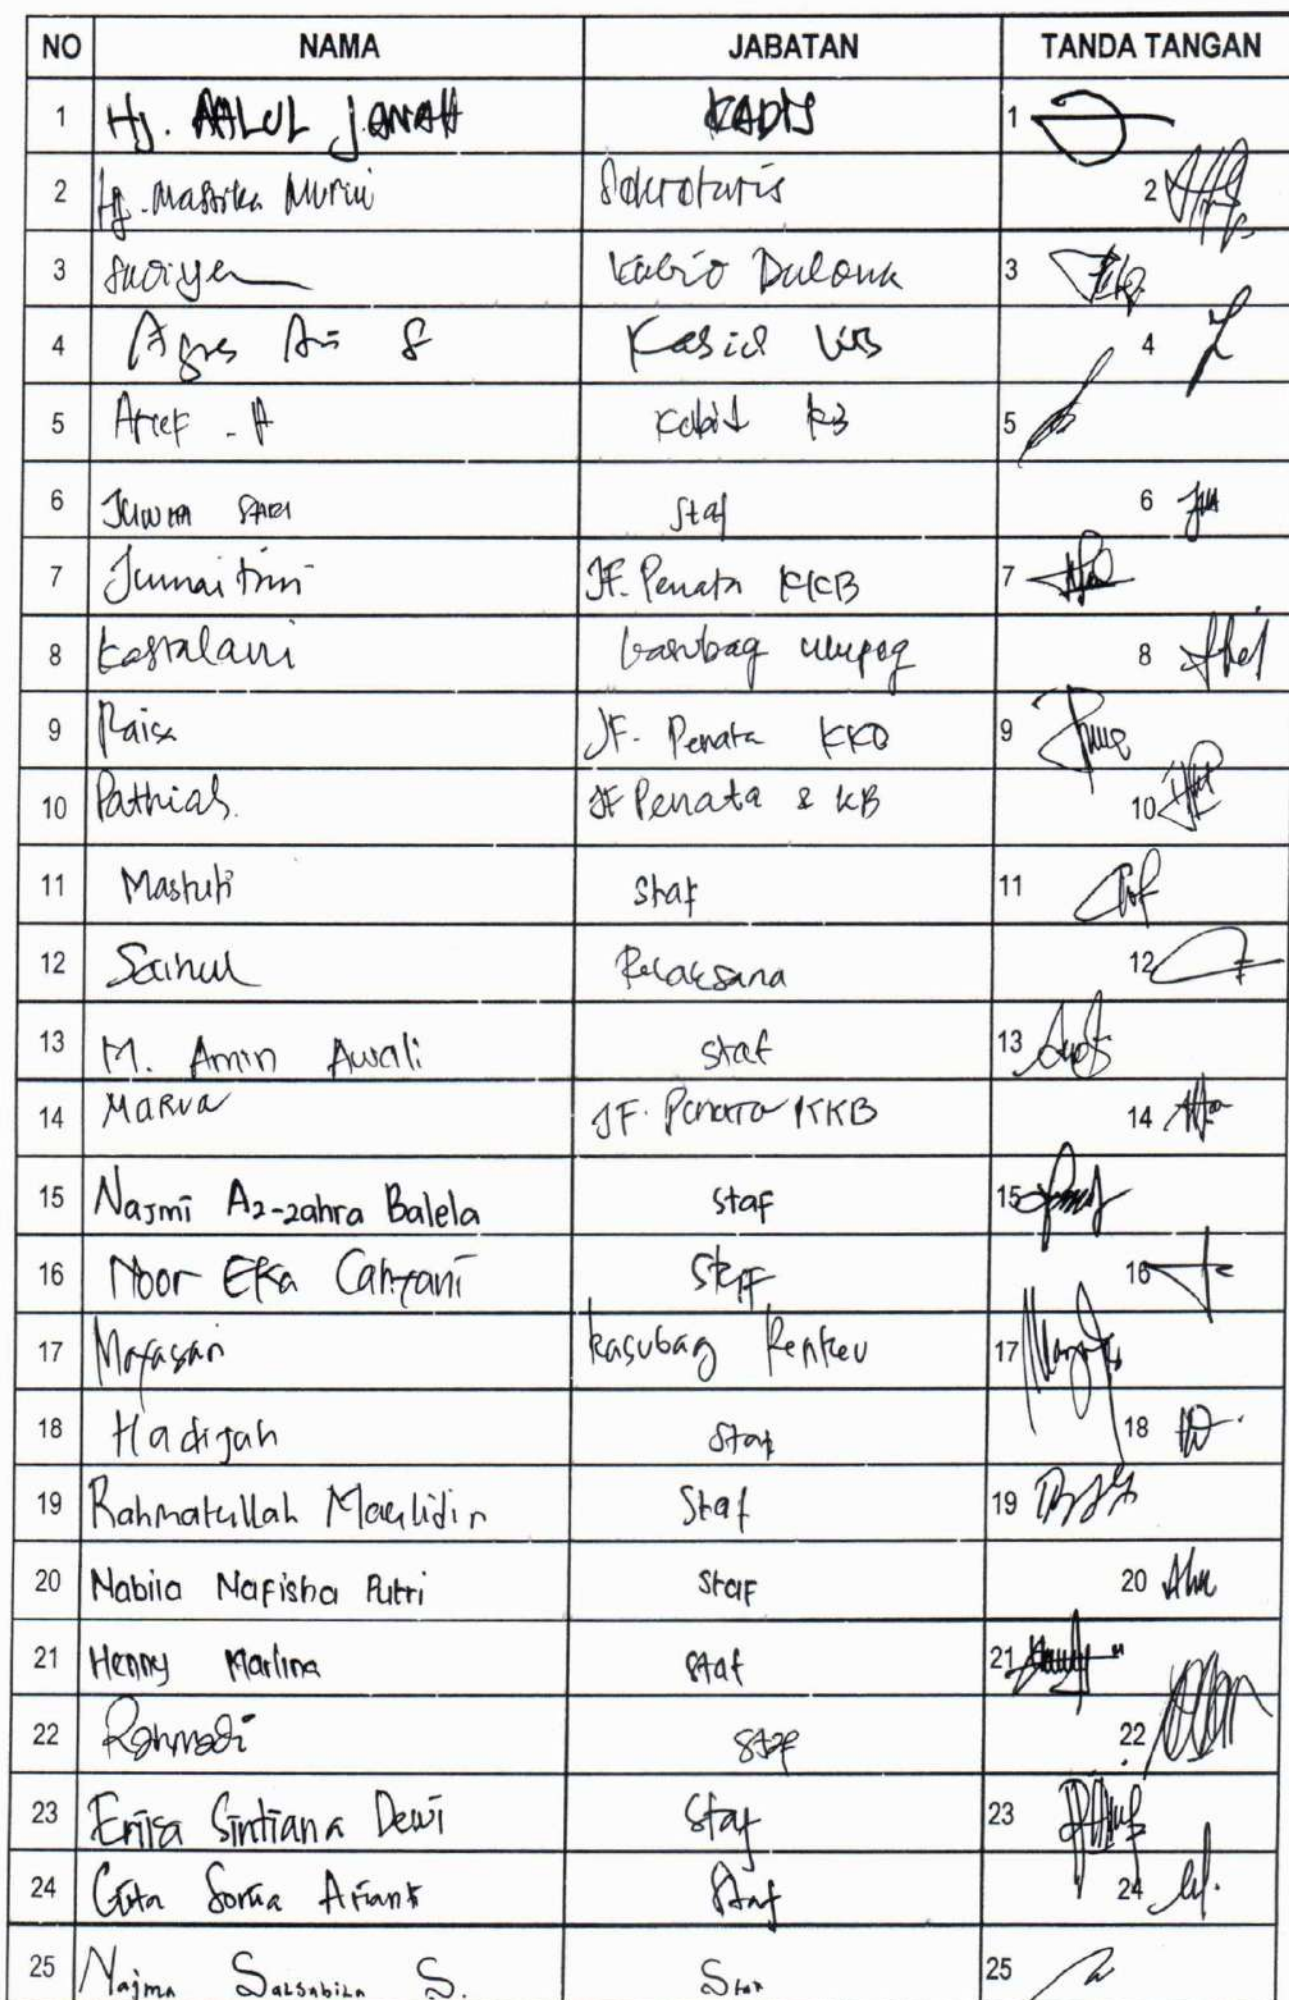 NO NAMA JABATAN TANDA TANGAN
1 Hj. AALUL JANAH KADIS 1
2 Hj. Mastika Murni Sekretaris 2
3 3
4 Agus Ari S Kasid 4
5 Arief . A Kabid KB 5
6 Juwita SARI Staf 6
7 Jumaitini JF. Penata KKB 7
8 Kastalani Kasubag umpeg 8
9 Raisa JF. Penata KKB 9
10 Pathiah. JF Penata & KB 10
11 Mastuti Staf 11
12 Sainul Pelaksana 12
13 M. Amin Awali Staf 13
14 MARVA JF. Penata KKB 14
15 Najmi Az-zahra Balela Staf 15
16 Noor Eka Cahyani Staff 16
17 Mayasari Kasubag Renkeu 17
18 Hadijah Staf 18
19 Rahmatullah Maulidin Staf 19
20 Nabila Nafisha Putri Staf 20
21 Henny Marlina Staf 21
22 Rahmadi Staf 22
23 Erisa Sintiana Dewi Staf 23
24 Gita Sonia Arianti Staf 24
25 Najma Salsabila S. Staf 25